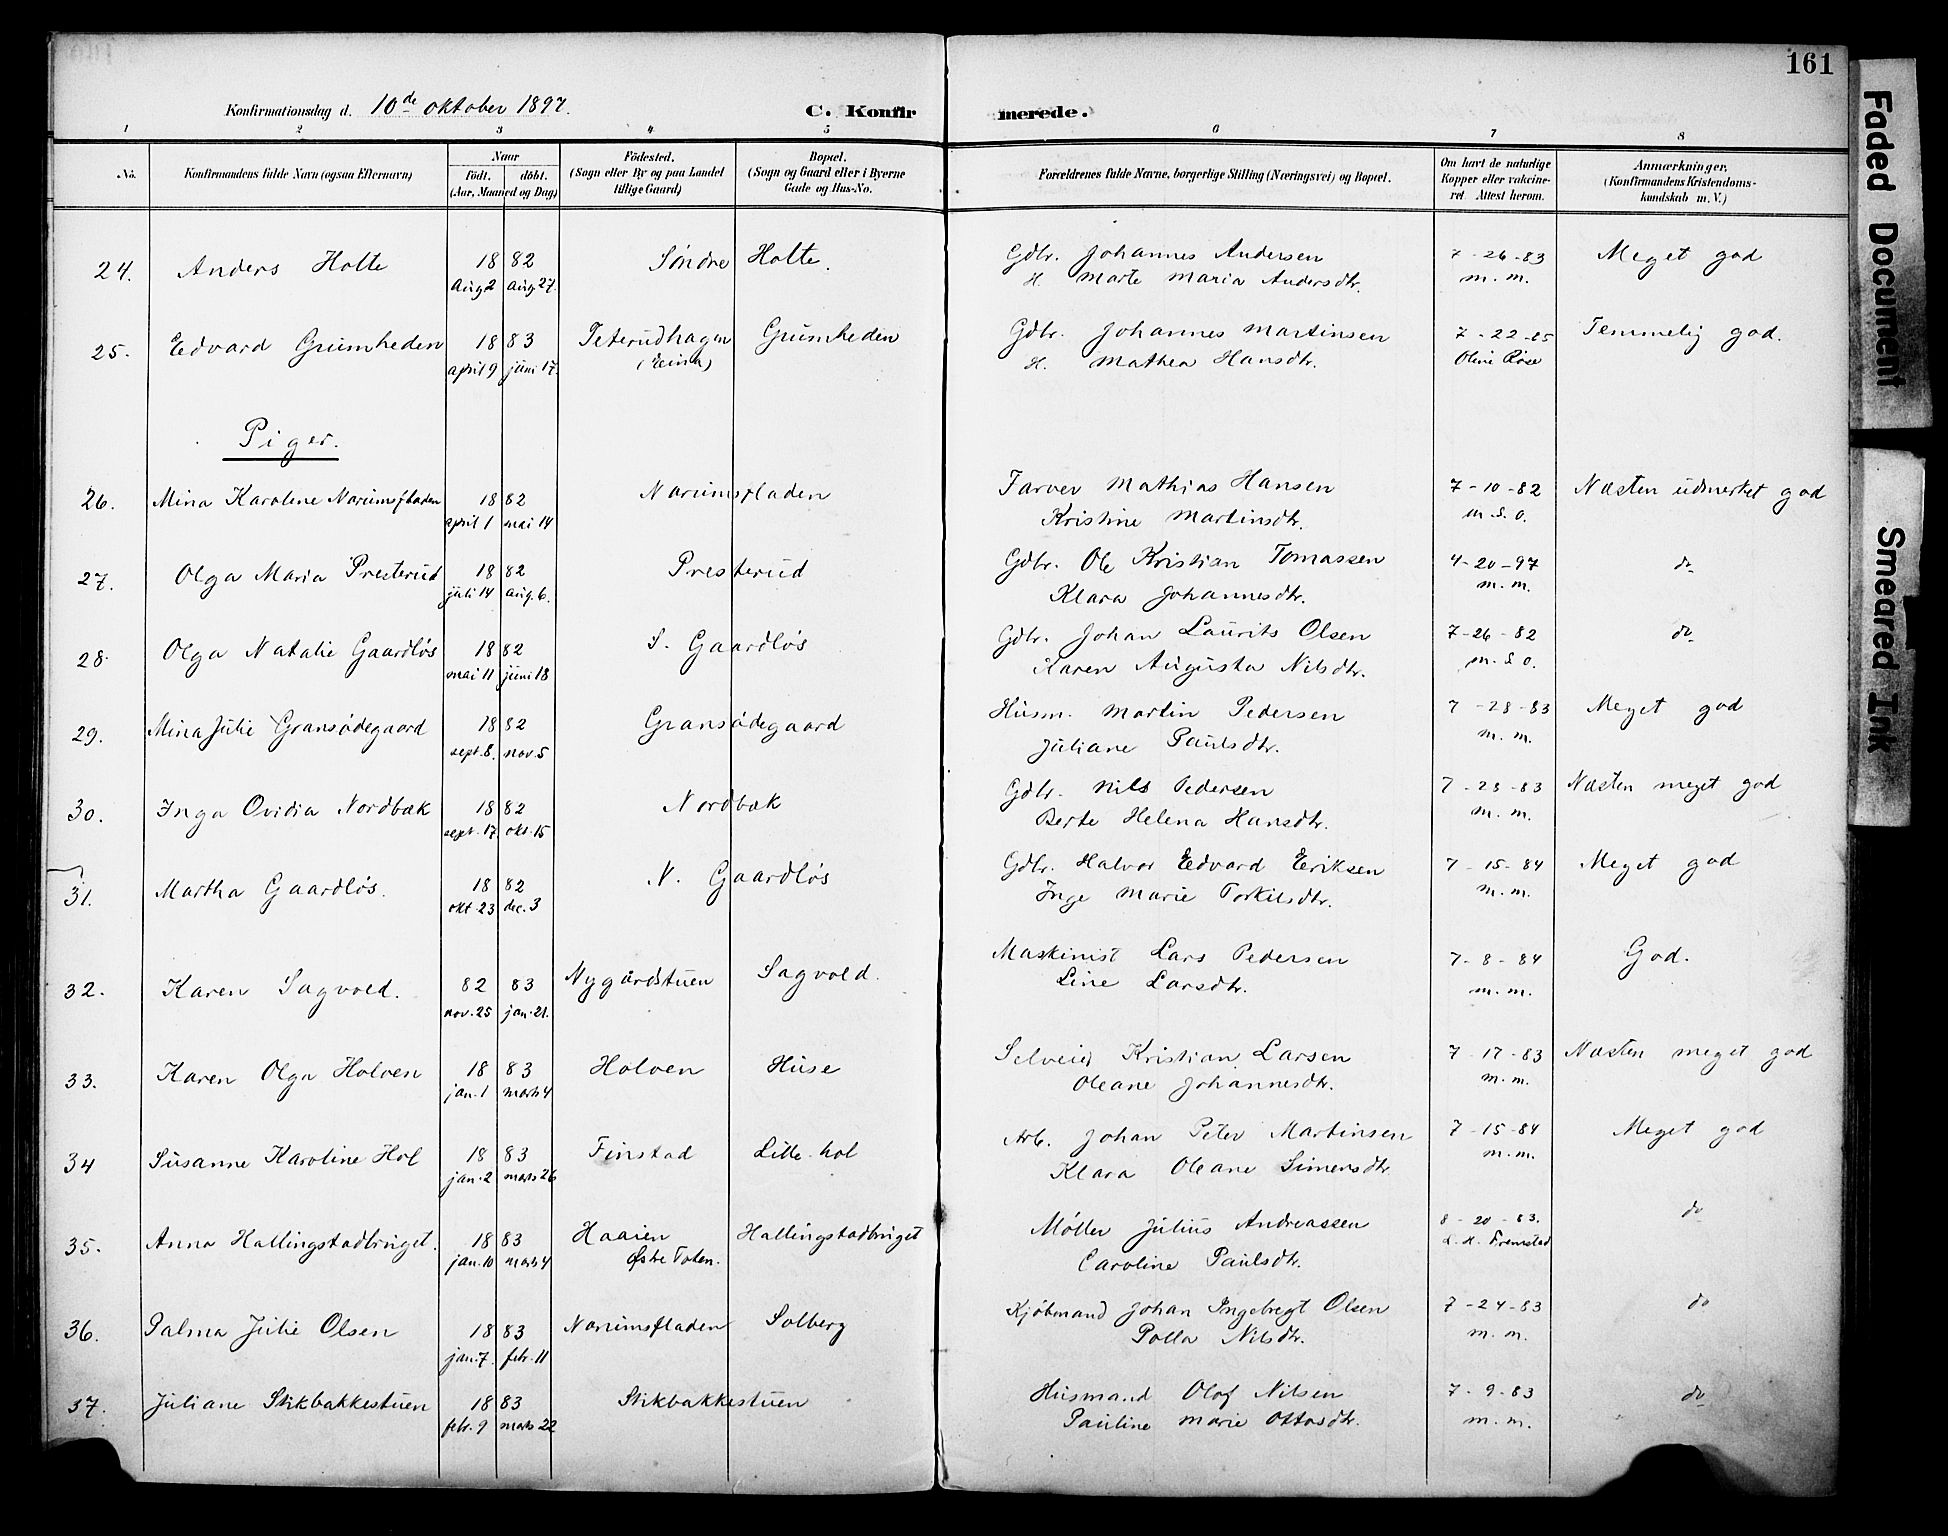 161
Konfirmationsdag d. 10de oktober 1897. C. Konfirmerede.
1 2 3 4 5 6 7 8
No. Konfirmandens fulde Navn (ogsaa Efternavn) Naar Födt. döbt. (Aar, Maaned og Dag) Födested. (Sogn eller By og paa Landet tillige Gaard) Bopæl. (Sogn og Gaard eller i Byerne Gade og Hus-No.) Forældrenes fulde Navne, borgerlige Stilling (Næringsvei) og Bopæl. Om havt de naturlige Kopper eller vakcineret. Attest herom. Anmærkninger. (Konfirmandens Kristendomskundskab m.V.)
24. Anders Holte 18 82 Søndre Holte. Gdbr. Johannes Andersen 7-26-83 Meget god
Aug 2 Aug 27. H. Marte Maria Andersdtr. m. m.
25. Edvard Grumheden 18 83 Peterudhagen Grumheden Gdbr. Johannes Martinsen 7-22-85 Temmelig god.
april 9 juni 17. (Eina) H. Mathea Hansdtr. Oline Røse
Piger.
26. Mina Karolene Narumsfladen 18 82 Narumsfladen Farver Mathias Hansen 7-10-82 Næsten udmerket god
april 1 mai 14 Kristine Martinsdtr. m. S. o.
27. Olga Maria Presterud 18 82 Presterud Gdbr. Ole Kristian Tomassen 4-20-97 do
juli 14 aug. 6. Klara Johannesdtr. m. m.
28. Olga Natalie Gaardløs 18 82 S. Gaardløs Gdbr. Johan Laurits Olsen 7-26-82 do
mai 11 juni 18 Karen Augusta Nilsdtr. m. S o.
29. Mina Julie Gransødegaard 18 82 Gransødegaard Husm. Martin Pedersen 7-28-83 Meget god
sept. 8. nov. 5 Juliane Paulsdtr. m. m.
30. Inga Ovidia Nordbæk 18 82 Nordbæk Gdbr. Nils Pedersen 7-28-83 Næsten meget god
sept. 17 okt. 15 Berte Helena Hansdtr. m. m.
31. Martha Gaardløs. 18 82 N. Gaardløs Gdbr. Halvor Edvard Eriksen 7-15-84 Meget god
okt. 23 dec. 3 Inge Marie Torkilsdtr. m. m.
32. Karen Sagvold. 82 83 Nygårdstuen Sagvold. Maskinist Lars Pedersen 7-8-84 God.
nov. 25 jan. 21. Line Larsdtr. m. m.
33. Karen Olga Holven 18 83 Holven Huse Selveier Kristian Larsen 7-17-83 Næsten meget god
jan. 1 mars 4 Oleane Johannesdtr. m. m.
34 Susanne Karoline Hol 18 83 Finstad Lille-hol Arb. Johan Peter Martinsen 7-15-84 Meget god
jan. 2 mars 26 Klara Oleane Simensdtr. m. m.
35. Anna Hallingstadbriget. 18 83 Haajen Hallingstadbriget Møller Julius Andreassen 8-20-83. do
jan. 10 mars 4 Østre Toten. Caroline Paulsdtr. L. H. Fremstad
36. Palma Julie Olsen 18 83 Narumsfladen Solberg Kjøbmand Johan Ingebregt Olsen 7-24-83 do
jan. 7. febr. 11 Polla Nilsdtr. m. m.
37. Juliane Stikbakkestuen 18 83 Stikbakkestuen Husmand Olof Nilsen 7-9-83 do
febr. 9 mars 22 Pauline Marie Ottosdtr. m. m.
Faded Document
Smeared Ink